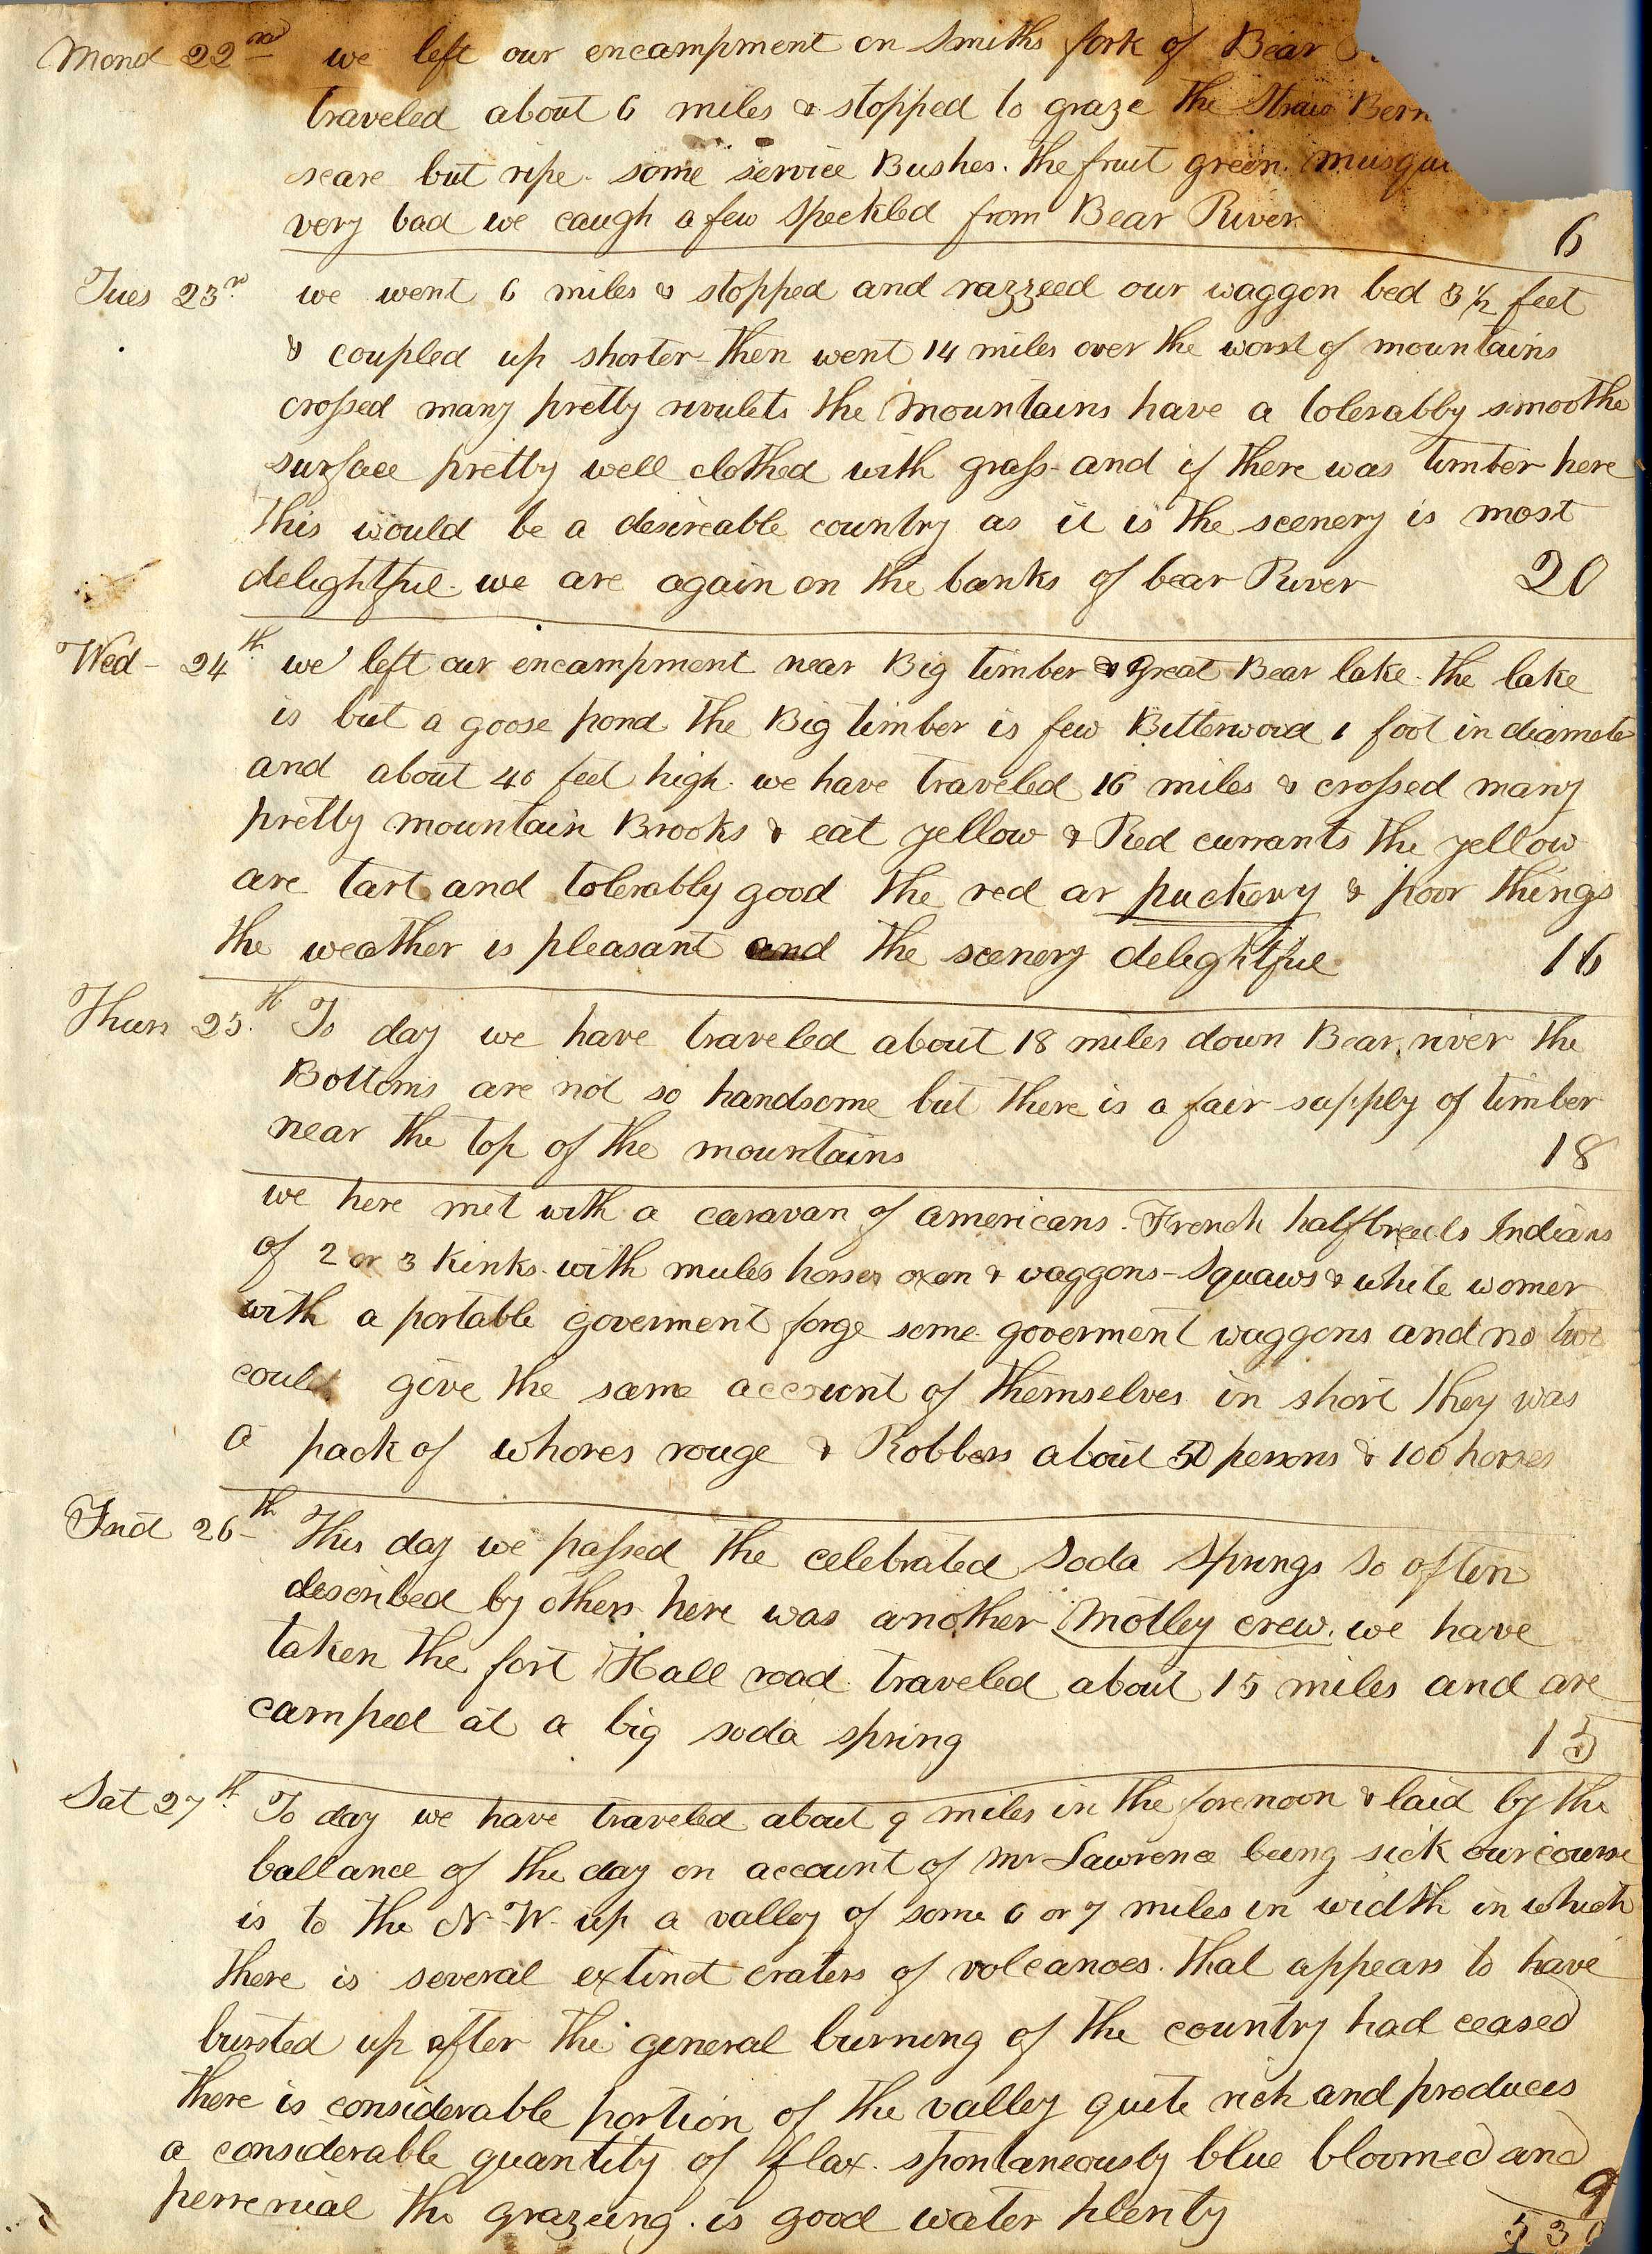 Mond 22nd we left our encampment on Smiths fork of Bear
traveled about 6 miles & stopped to graze the Straw Berr
scare but ripe. some service Bushes. the fruit green. musqui
very bad we caugh a few speckled from Bear River 6
Tues 23rd we went 6 miles & stopped and razzeed our waggon bed 3 1/2 feet
& coupled up shorter then went 14 miles over the worst of mountains
crossed many pretty rivulets the Mountains have a tolerabby smoothe
surface pretty well clothed with grass and if there was timber here
this would be a desireable country as it is the scenery is most
delightful. we are again on the banks of bear River 20
Wed - 24th we left our encampment near Big timber & Great Bear lake. the lake
is but a goose pond the Big timber is few Bitterwood 1 foot in diamete
and about 40 feet high. we have traveled 16 miles & crossed many
pretty mountain Brooks & eat yellow & Red currants the yellow
are tart and tolerably good the red ar puckery & poor things
the weather is pleasant and the scenery delightful 16
Thurs 25th To day we have traveled about 18 miles down Bear river the
Bottoms are not so handsome but there is a fair supply of timber
near the top of the mountains 18
we here met with a caravan of americans. French halfbreeds Indians
of 2 or 3 kinks with mules horses oxen & waggons - Squaws & white women
with a portable goverment forge some goverment waggons and no two
could give the same account of themselves in short they was
a pack of whores rouge & Robbers about 50 persons & 100 horses
Frid 26th This day we passed the celebrated soda springs so often
described by others here was another Motley crew. we have
taken the fort Hall road traveled about 15 miles and are
camped at a big soda spring 15
Sat 27th To day we have traveled about 9 miles in the forenoon & laid by the
ballance of the day on account of Mr Lawrence being sick our course
is to the N-W- up a valley of some 6 or 7 miles in width in which
there is several extinct craters of volcanoes. that appears to have
bursted up after the general burning of the country had ceased
there is considerable portion of the valley quite rich and produces
a considerable quantity of flax. spontaneously blue bloomed and
perrenial the grazeing. is good water plenty 9